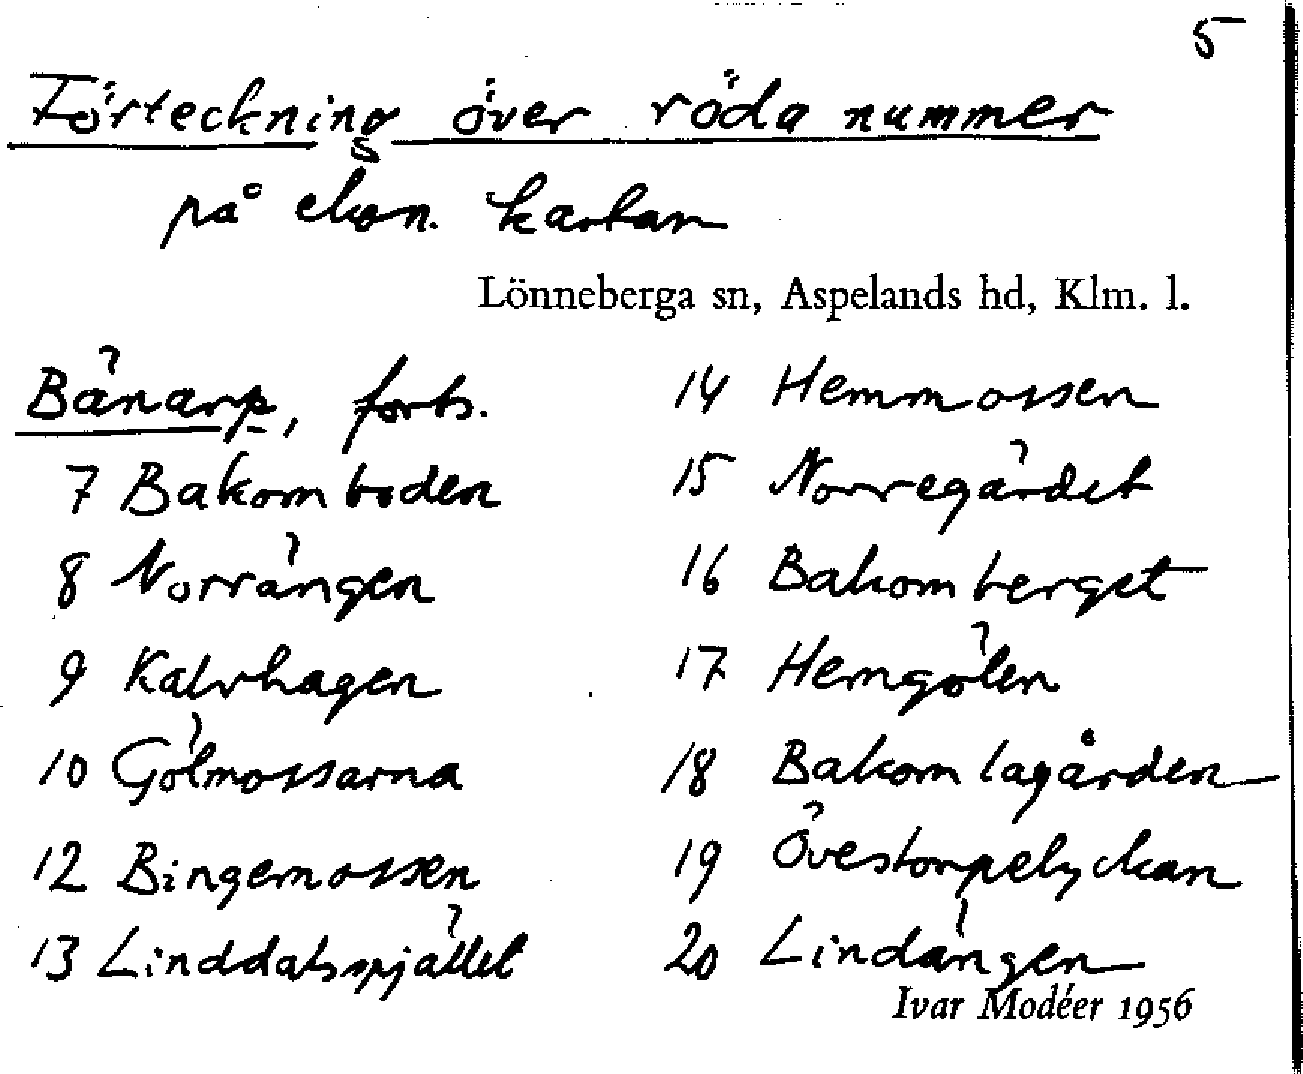 5
Förteckning över röda nummer
på ekon. kartan
Lönneberga sn, Aspelands hd, Klm. l.
Bänarp, forts.
7 Bakom boden
8 Norrängen
9 Kalvhagen
10 Gölmossarna
12 Bingemossen
13 Linddalspjället
14 Hemmossen
15 Norregärdet
16 Bakom berget
17 Hemgölen
18 Bakom lagården
19 Övestorpelyckan
20 Lindängen
Ivar Modéer 1956